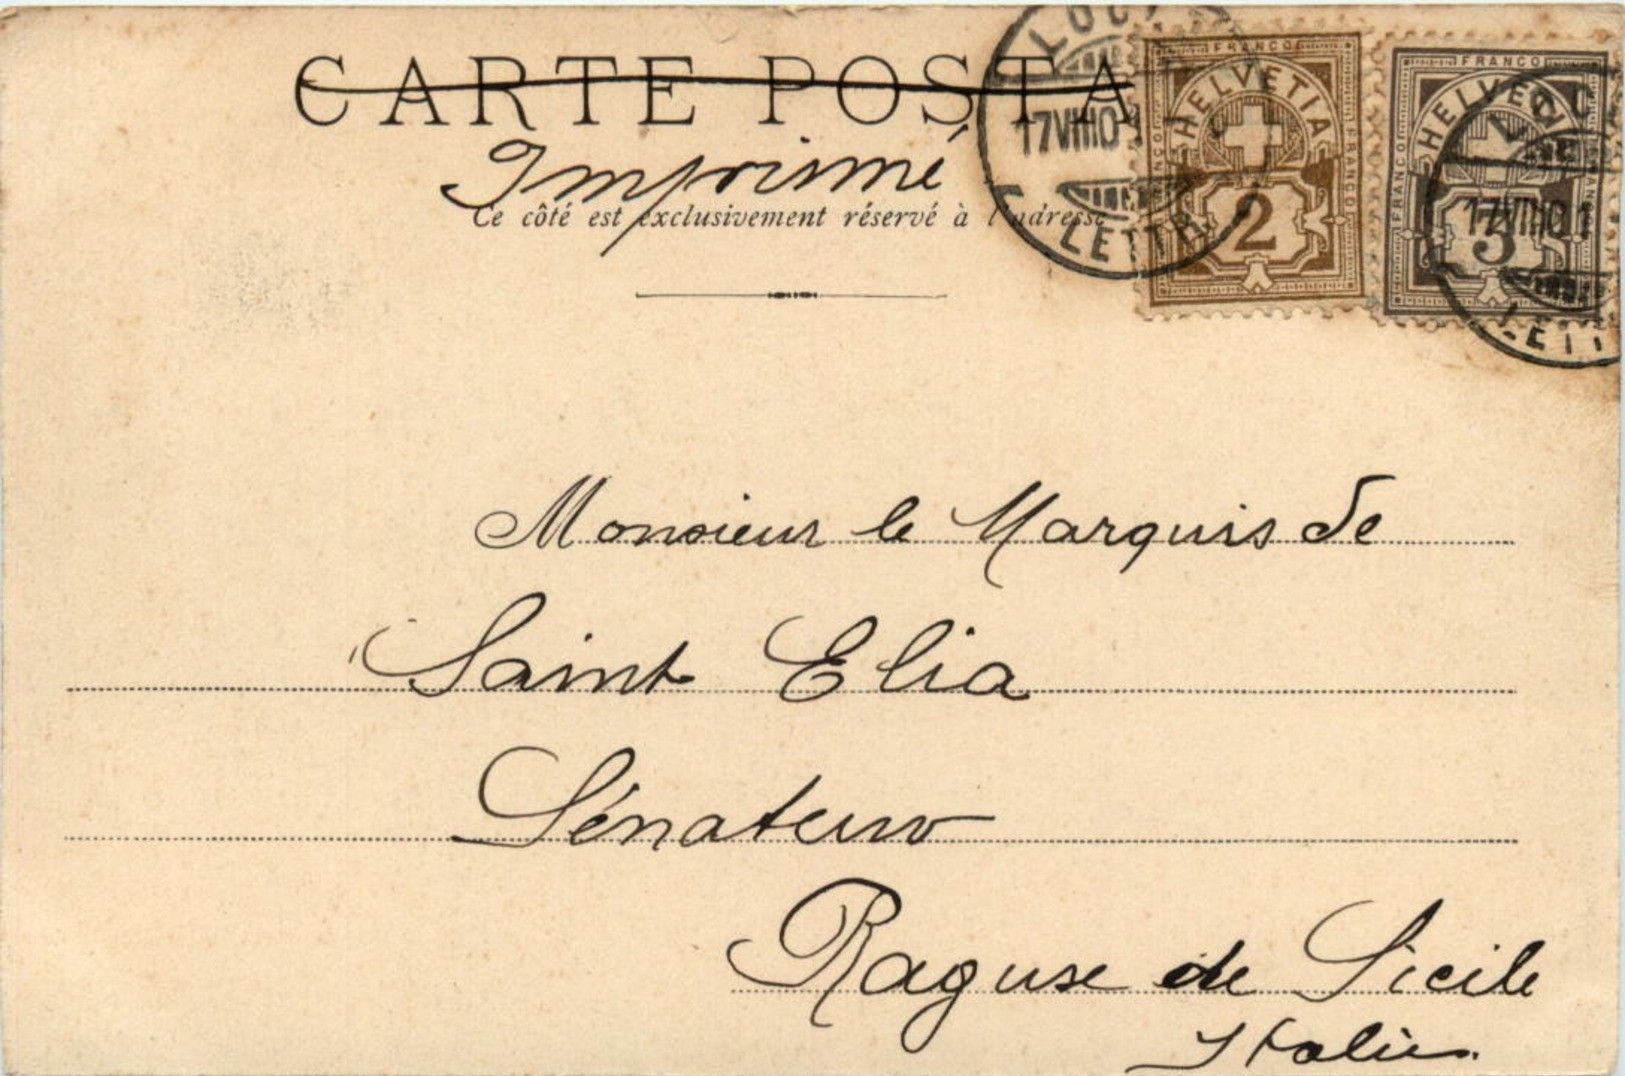 CARTE POSTA
Imprimé
Ce côté est exclusivement réservé à l'adresse
17 VIII 01
LETTR
FRANCO
HELVETIA
FRANCO
FRANCO
2
FRANCO
HELVE
FRANCO
17 VIII 01
3
LETT
Monsieur le Marquis de
Saint Elia
Sénateur
Raguse de Sicile
Italie